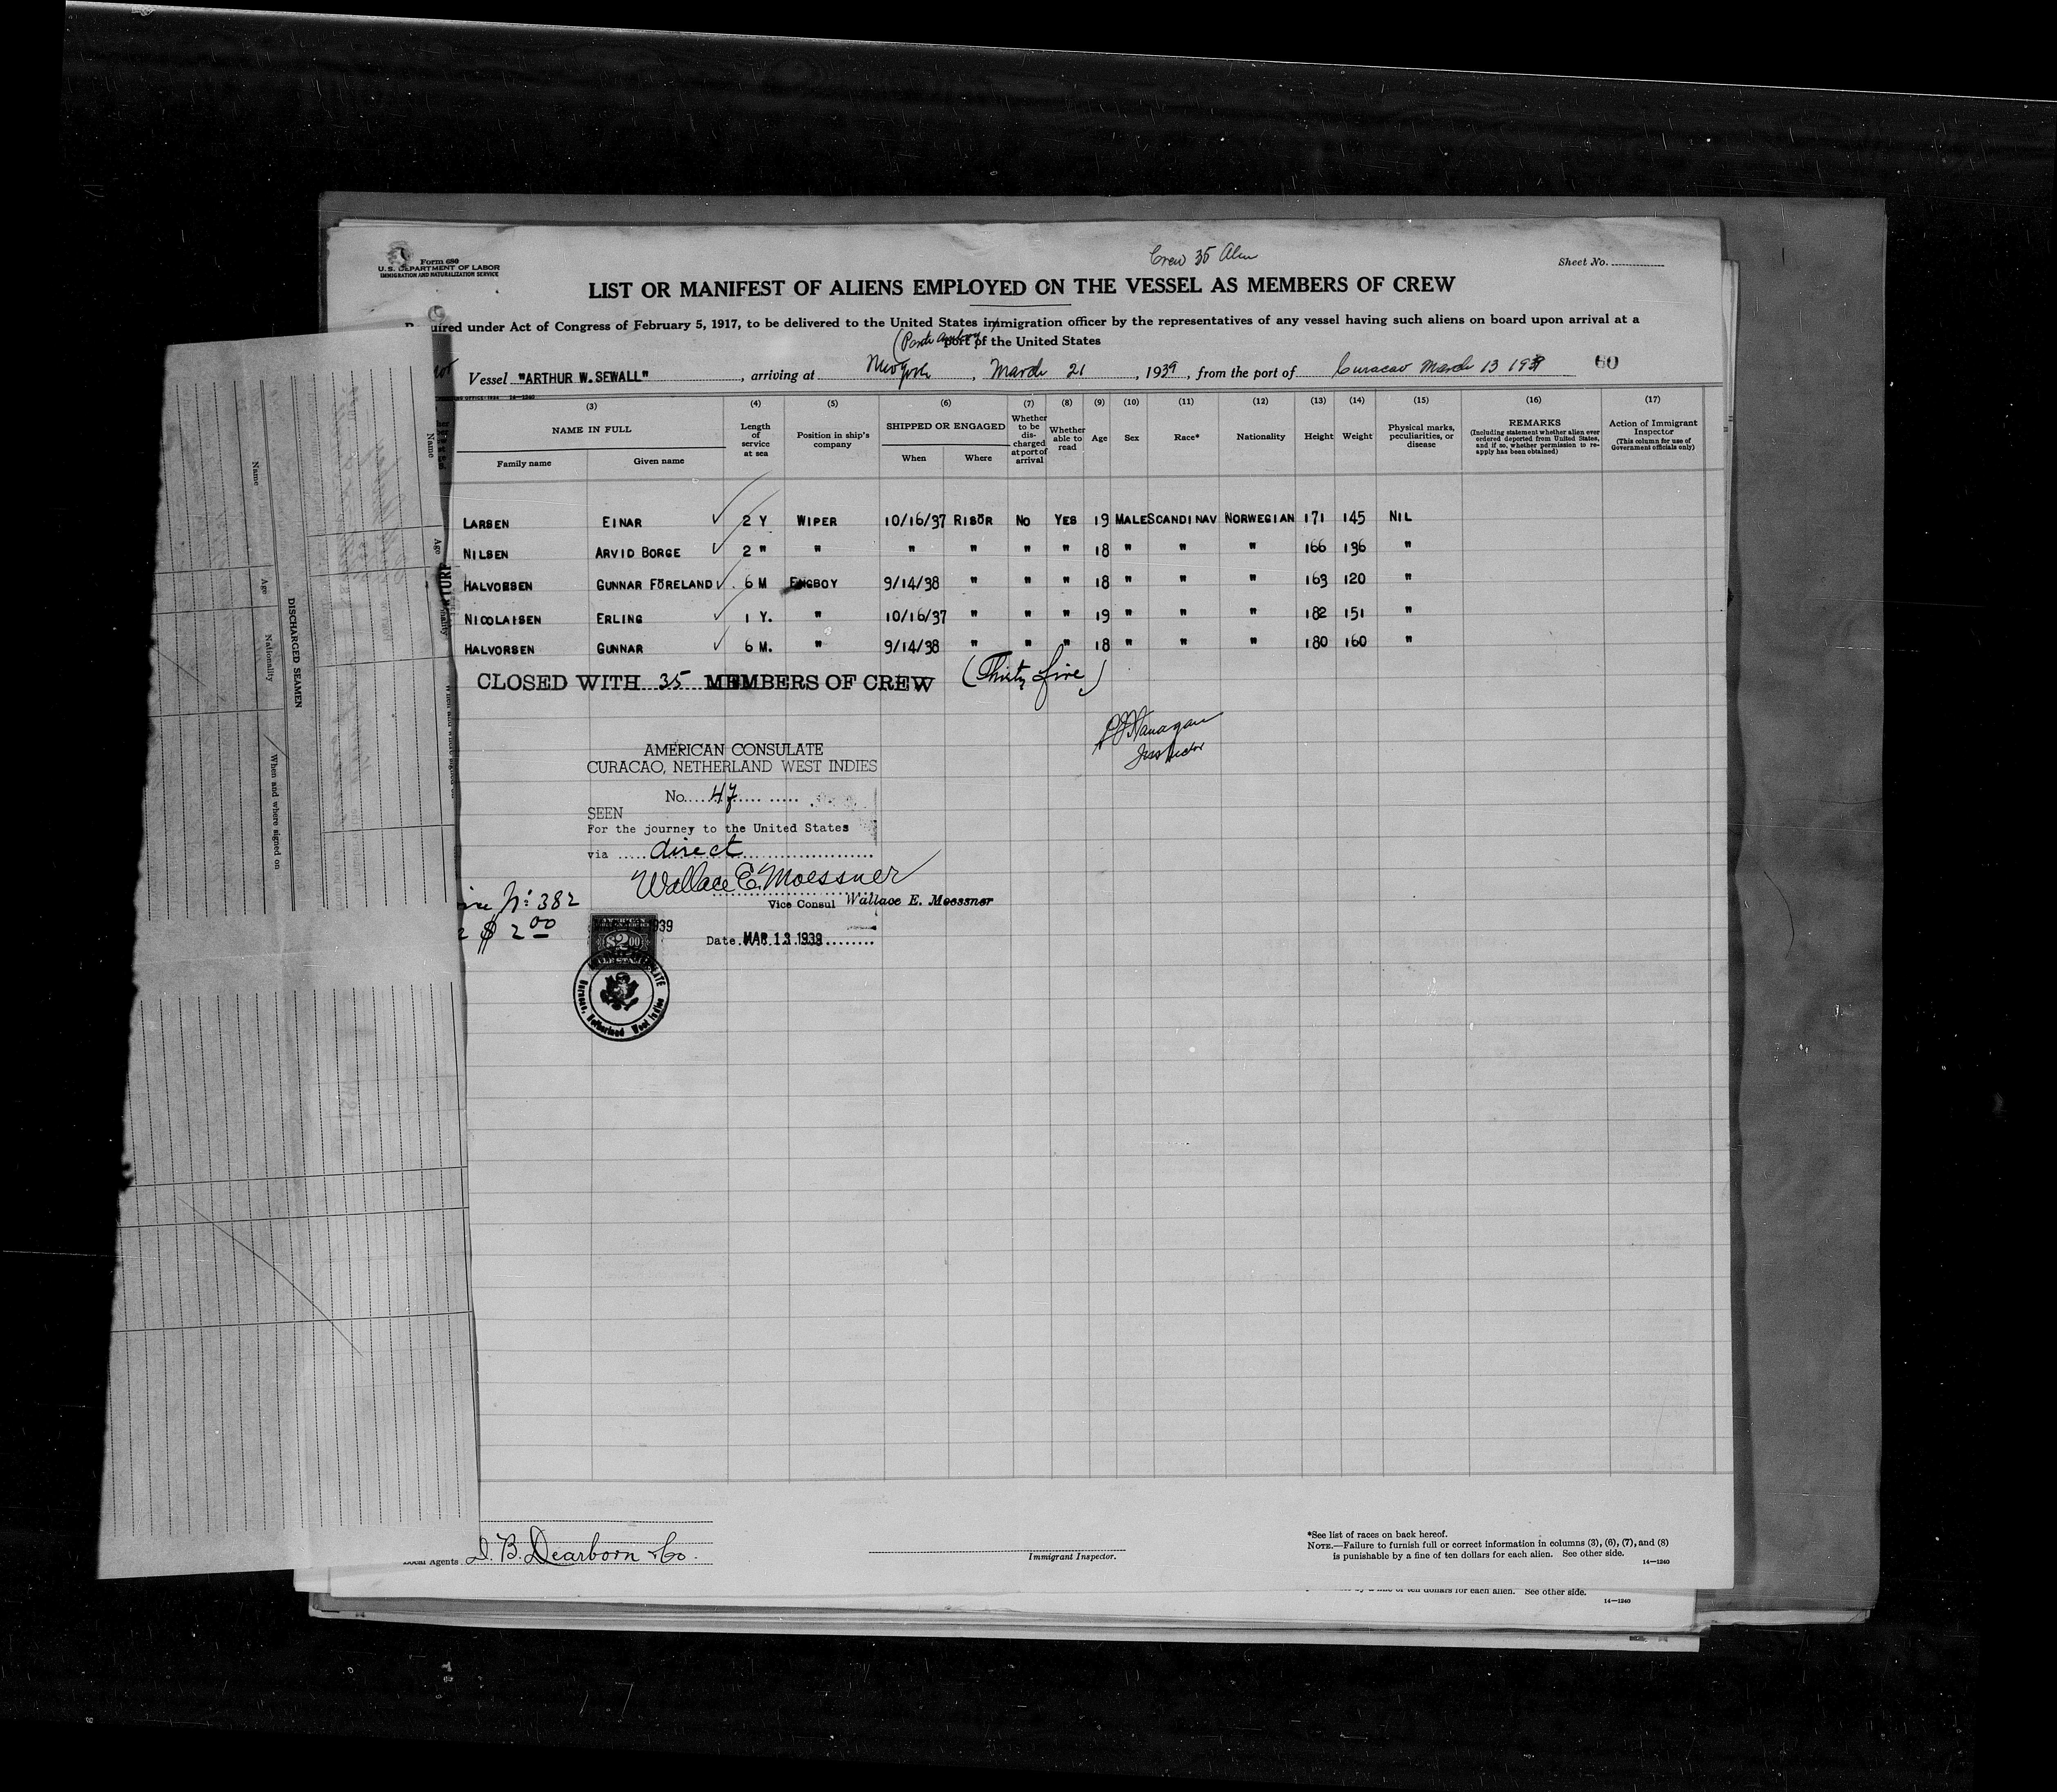 Form 680
U.S. DEPARTMENT OF LABOR
IMMIGRATION AND NATURALIZATION SERVICE
Crew 35 Alien
Sheet No.
LIST OR MANIFEST OF ALIENS EMPLOYED ON THE VESSEL AS MEMBERS OF CREW
uired under Act of Congress of February 5, 1917, to be delivered to the United States immigration officer by the representatives of any vessel having such aliens on board upon arrival at a
port of the United States
(Perth Amboy)
Vessel "ARTHUR W. SEWALL", arriving at New York, March 21, 1939, from the port of Curacao March 13 1939 60
(3) (4) (5) (6) (7) (8) (9) (10) (11) (12) (13) (14) (15) (16) (17)
NAME IN FULL
Family name
Given name
Length of service at sea
Position in ship's company
SHIPPED OR ENGAGED
When
Where
Whether to be discharged at port of arrival
Whether able to read
Age
Sex
Race*
Nationality
Height
Weight
Physical marks, peculiarities, or disease
REMARKS
(Including statement whether alien ever ordered deported from United States, and if so, whether permission to re-apply has been obtained)
Action of Immigrant Inspector
(This column for use of Government officials only)
LARSEN EINAR 2 Y WIPER 10/16/37 RISÖR NO YES 19 MALE SCANDINAV NORWEGIAN 171 145 NIL
NILSEN ARVID BORGE 2 " " " " " " 18 " " " 166 136 "
HALVORSEN GUNNAR FÖRELAND 6 M ENGBOY 9/14/38 " " " 18 " " " 163 120 "
NICOLAISEN ERLING 1 Y. " 10/16/37 " " " 19 " " " 182 151 "
HALVORSEN GUNNAR 6 M. " 9/14/38 " " " 18 " " " 180 160 "
CLOSED WITH 35 MEMBERS OF CREW (Thirty five)
Inspector
AMERICAN CONSULATE
CURACAO, NETHERLAND WEST INDIES
No. 47
SEEN
For the journey to the United States
via direct
Wallace E. Moessner
Vice Consul Wallace E. Moessner
Nº 382
$ 2 00
$2 00
Date MAR 13 1939
Curacao, Netherland West Indies
Name
Age
Nationality
When and where signed on
DISCHARGED SEAMEN
Name
Age
Local Agents J. B. Dearborn & Co.
Immigrant Inspector.
*See list of races on back hereof.
NOTE.—Failure to furnish full or correct information in columns (3), (6), (7), and (8)
is punishable by a fine of ten dollars for each alien. See other side.
14—1240
ten dollars for each alien. See other side.
14—1240